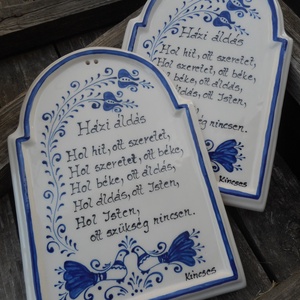 Házi áldás
Hol hit, ott szeretet,
Hol szeretet, ott béke,
Hol béke, ott áldás,
Hol áldás, ott Isten,
Hol Isten,
ott szükség nincsen.
Kincses
Házi áldás
Hol hit, ott szeretet,
Hol szeretet, ott béke,
béke, ott áldás,
áldás, ott Isten,
Isten,
szükség nincsen.
Kincses